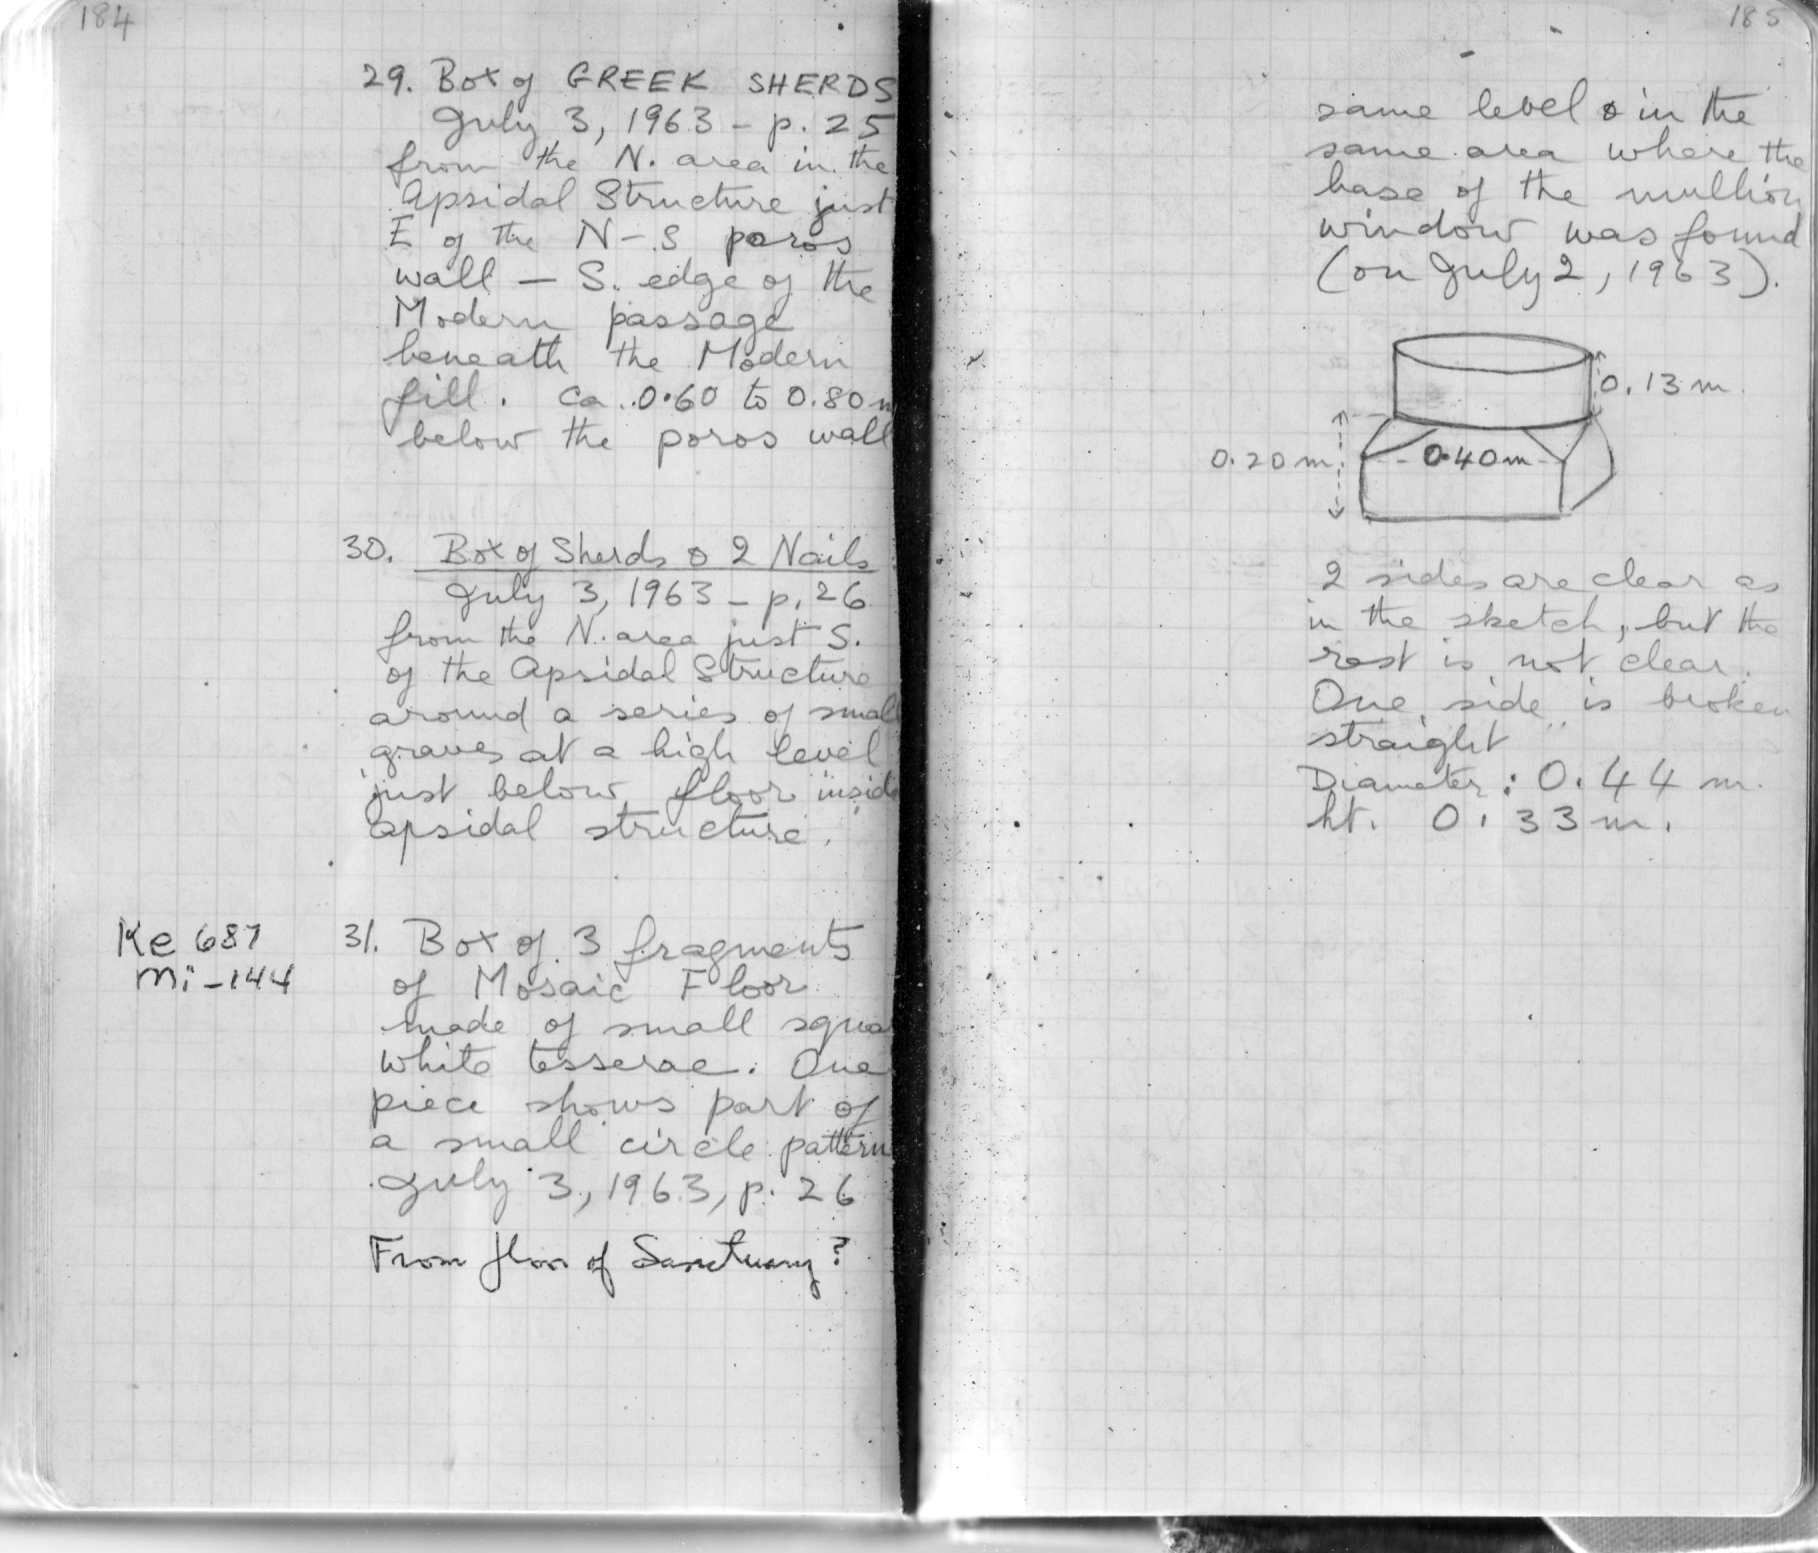 184
29. Box of GREEK SHERDS
July 3, 1963 - p. 25
from the N. area in the
Apsidal Structure just
E of the N-S poros
wall - S. edge of the
Modern passage
beneath the Modern
fill. ca. 0.60 to 0.80 m
below the poros wall
30. Box of Sherds & 2 Nails
July 3, 1963 - p. 26
from the N. area just S.
of the Apsidal Structure
around a series of small
graves at a high level
just below floor inside
apsidal structure.
Ke 687
mi-144
31. Box of 3 fragments
of Mosaic Floor
made of small squa
white tesserae. One
piece shows part of
a small circle pattern
July 3, 1963, p. 26
From floor of Sanctuary?
185
same level & in the
same area where the
base of the mullion
window was found
(on July 2, 1963).
0.13 m.
0.20 m.
0.40 m
2 sides are clear as
in the sketch, but the
rest is not clear.
One side is broken
straight
Diameter: 0.44 m.
ht. 0.33 m.